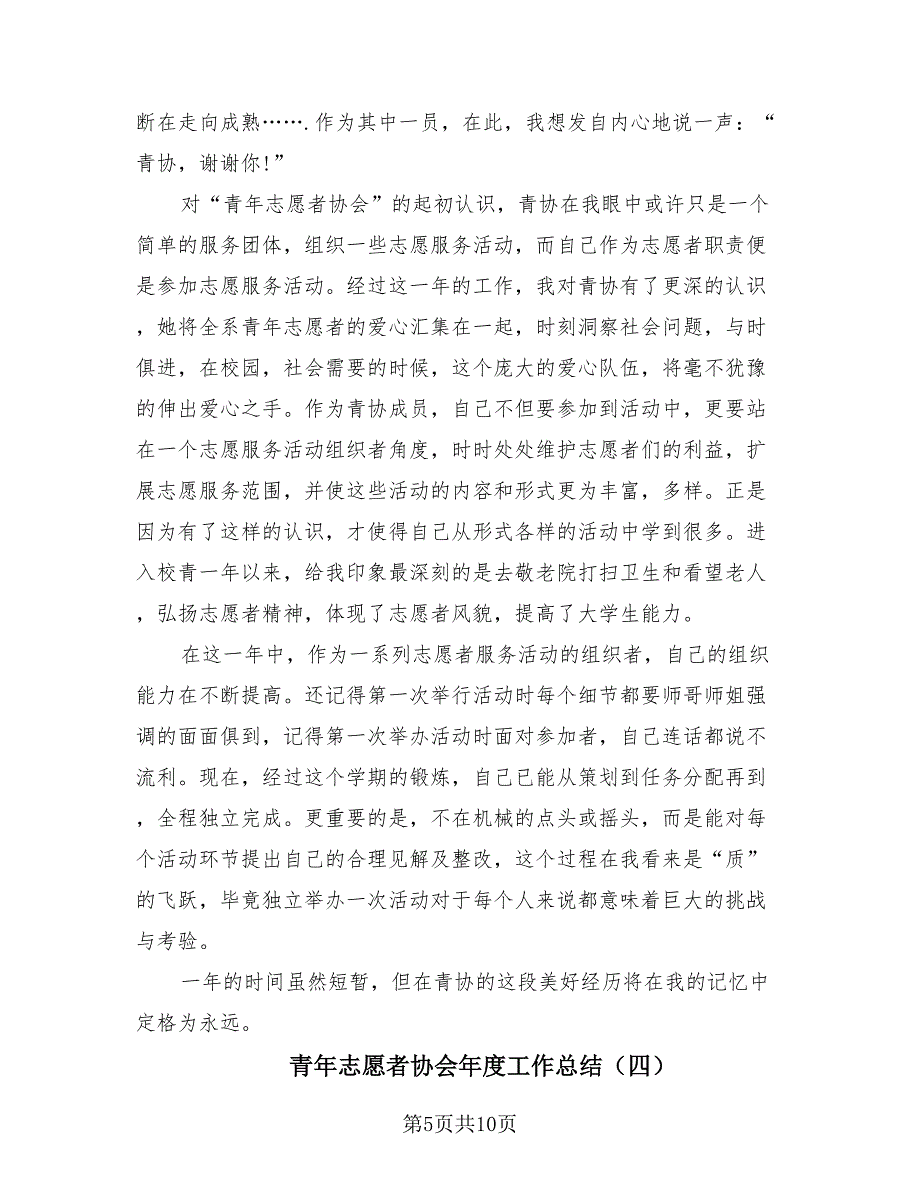 断在走向成熟…….作为其中一员，在此，我想发自内心地说一声：“
青协，谢谢你！”
对“青年志愿者协会”的起初认识，青协在我眼中或许只是一个
简单的服务团体，组织一些志愿服务活动，而自己作为志愿者职责便
是参加志愿服务活动。经过这一年的工作，我对青协有了更深的认识
，她将全系青年志愿者的爱心汇集在一起，时刻洞察社会问题，与时
俱进，在校园，社会需要的时候，这个庞大的爱心队伍，将毫不犹豫
的伸出爱心之手。作为青协成员，自己不但要参加到活动中，更要站
在一个志愿服务活动组织者角度，时时处处维护志愿者们的利益，扩
展志愿服务范围，并使这些活动的内容和形式更为丰富，多样。正是
因为有了这样的认识，才使得自己从形式各样的活动中学到很多。进
入校青一年以来，给我印象最深刻的是去敬老院打扫卫生和看望老人
，弘扬志愿者精神，体现了志愿者风貌，提高了大学生能力。
在这一年中，作为一系列志愿者服务活动的组织者，自己的组织
能力在不断提高。还记得第一次举行活动时每个细节都要师哥师姐强
调的面面俱到，记得第一次举办活动时面对参加者，自己连话都说不
流利。现在，经过这个学期的锻炼，自己已能从策划到任务分配再到
，全程独立完成。更重要的是，不在机械的点头或摇头，而是能对每
个活动环节提出自己的合理见解及整改，这个过程在我看来是“质”
的飞跃，毕竟独立举办一次活动对于每个人来说都意味着巨大的挑战
与考验。
一年的时间虽然短暂，但在青协的这段美好经历将在我的记忆中
定格为永远。
青年志愿者协会年度工作总结（四）
第5页共10页